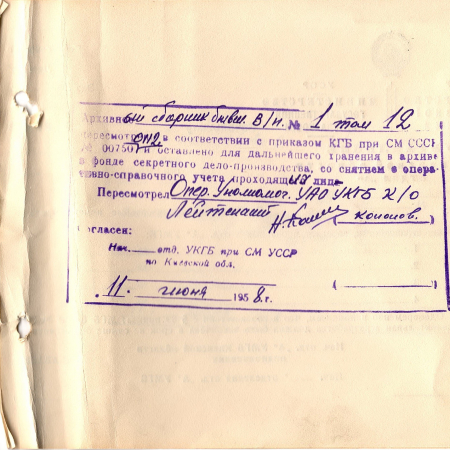 Архивный сборник бывш. В/п. № 1 том 12
пересмотрен в соответствии с приказом КГБ при СМ СССР
№ 00750 и оставлено для дальнейшего хранения в архиве
в фонде секретного дело-производства, со снятием с опера-
тивно-справочного учета проходящих лиц
Пересмотрел Опер. Уполномог. УАО УКГБ К/О
Лейтенант Кононов.
Согласен:
Нач. отд. УКГБ при СМ УССР
по Киевской обл.
" 11. июня 1958 г. ( )